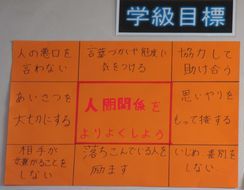 学級目標
人の悪口を
言わない
言葉づかいや態度に
気をつける
協力して
助け合う
あいさつを
大切にする
人間関係を
よりよくしよう
思いやりを
もって接する
相手が
嫌がることを
しない
落ちこんでいる人を
励ます
いじめ 差別を
しない